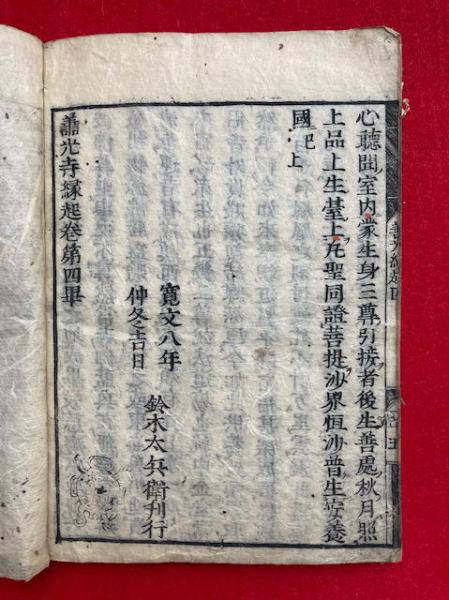 心聽聞室内蒙生身三尊引接者後生善處秋月照
上品上生臺上凡聖同證菩提沙界恒沙普生安養
國已上
寛文八年
仲冬吉日
鈴木太兵衛刊行
善光寺縁起卷第四畢